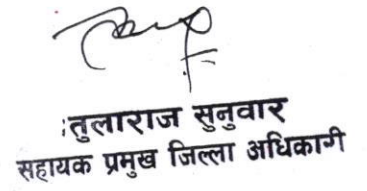 :तुलाराज सुनुवार
सहायक प्रमुख जिल्ला अधिकारी